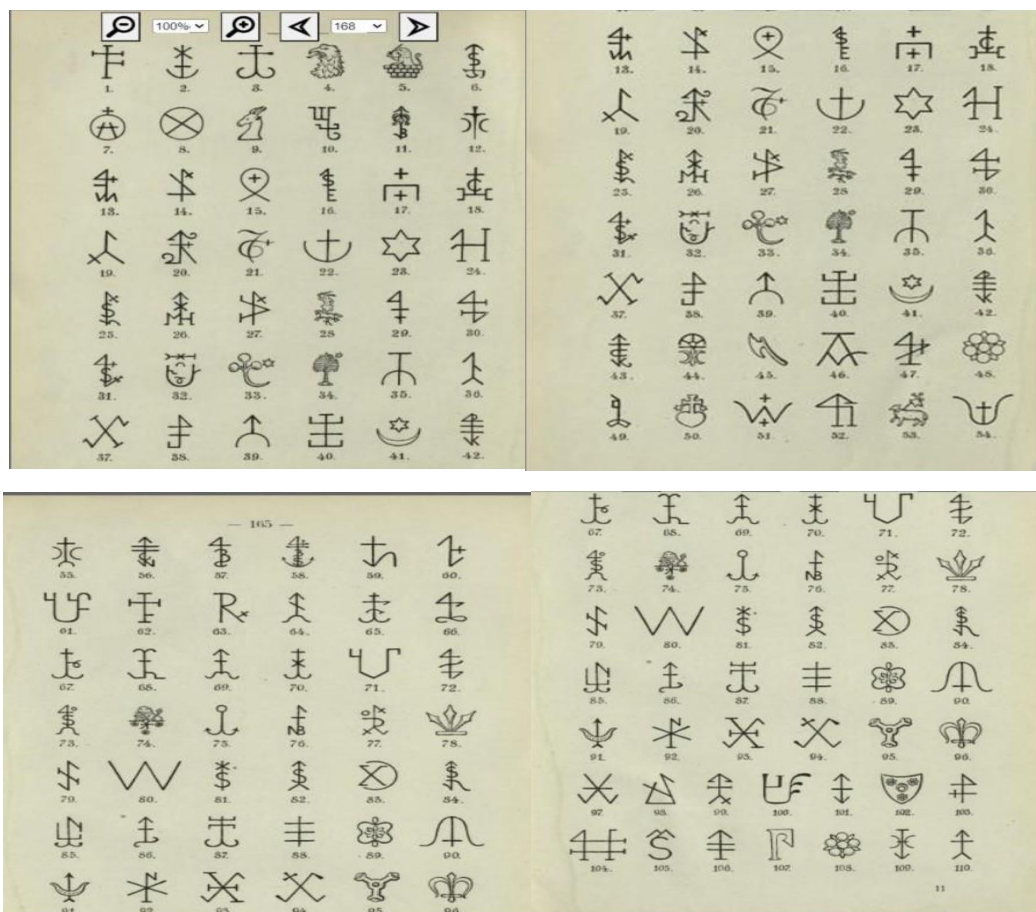 100% 168
1. 2. 3. 4. 5. 6.
7. 8. 9. 10. 11. 12.
13. 14. 15. 16. 17. 18.
19. 20. 21. 22. 23. 24.
25. 26. 27. 28 29. 30.
31. 32. 33. 34. 35. 36.
37. 38. 39. 40. 41. 42.
13. 14. 15. 16. 17. 18.
19. 20. 21. 22. 23. 24.
25. 26. 27. 28 29. 30.
31. 32. 33. 34. 35. 36.
37. 38. 39. 40. 41. 42.
43. 44. 45. 46. 47. 48.
49. 50. 51. 52. 53. 54.
— 165 —
55. 56. 57. 58. 59. 60.
61. 62. 63. 64. 65. 66.
67. 68. 69. 70. 71. 72.
73. 74. 75. 76. 77. 78.
79. 80. 81. 82. 83. 84.
85. 86. 87. 88. 89. 90.
91. 92. 93. 94. 95. 96.
67. 68. 69. 70. 71. 72.
73. 74. 75. 76. 77. 78.
79. 80. 81. 82. 83. 84.
85. 86. 87. 88. 89. 90.
91. 92. 93. 94. 95. 96.
97. 98. 99. 100. 101. 102. 103.
104. 105. 106. 107. 108. 109. 110.
11